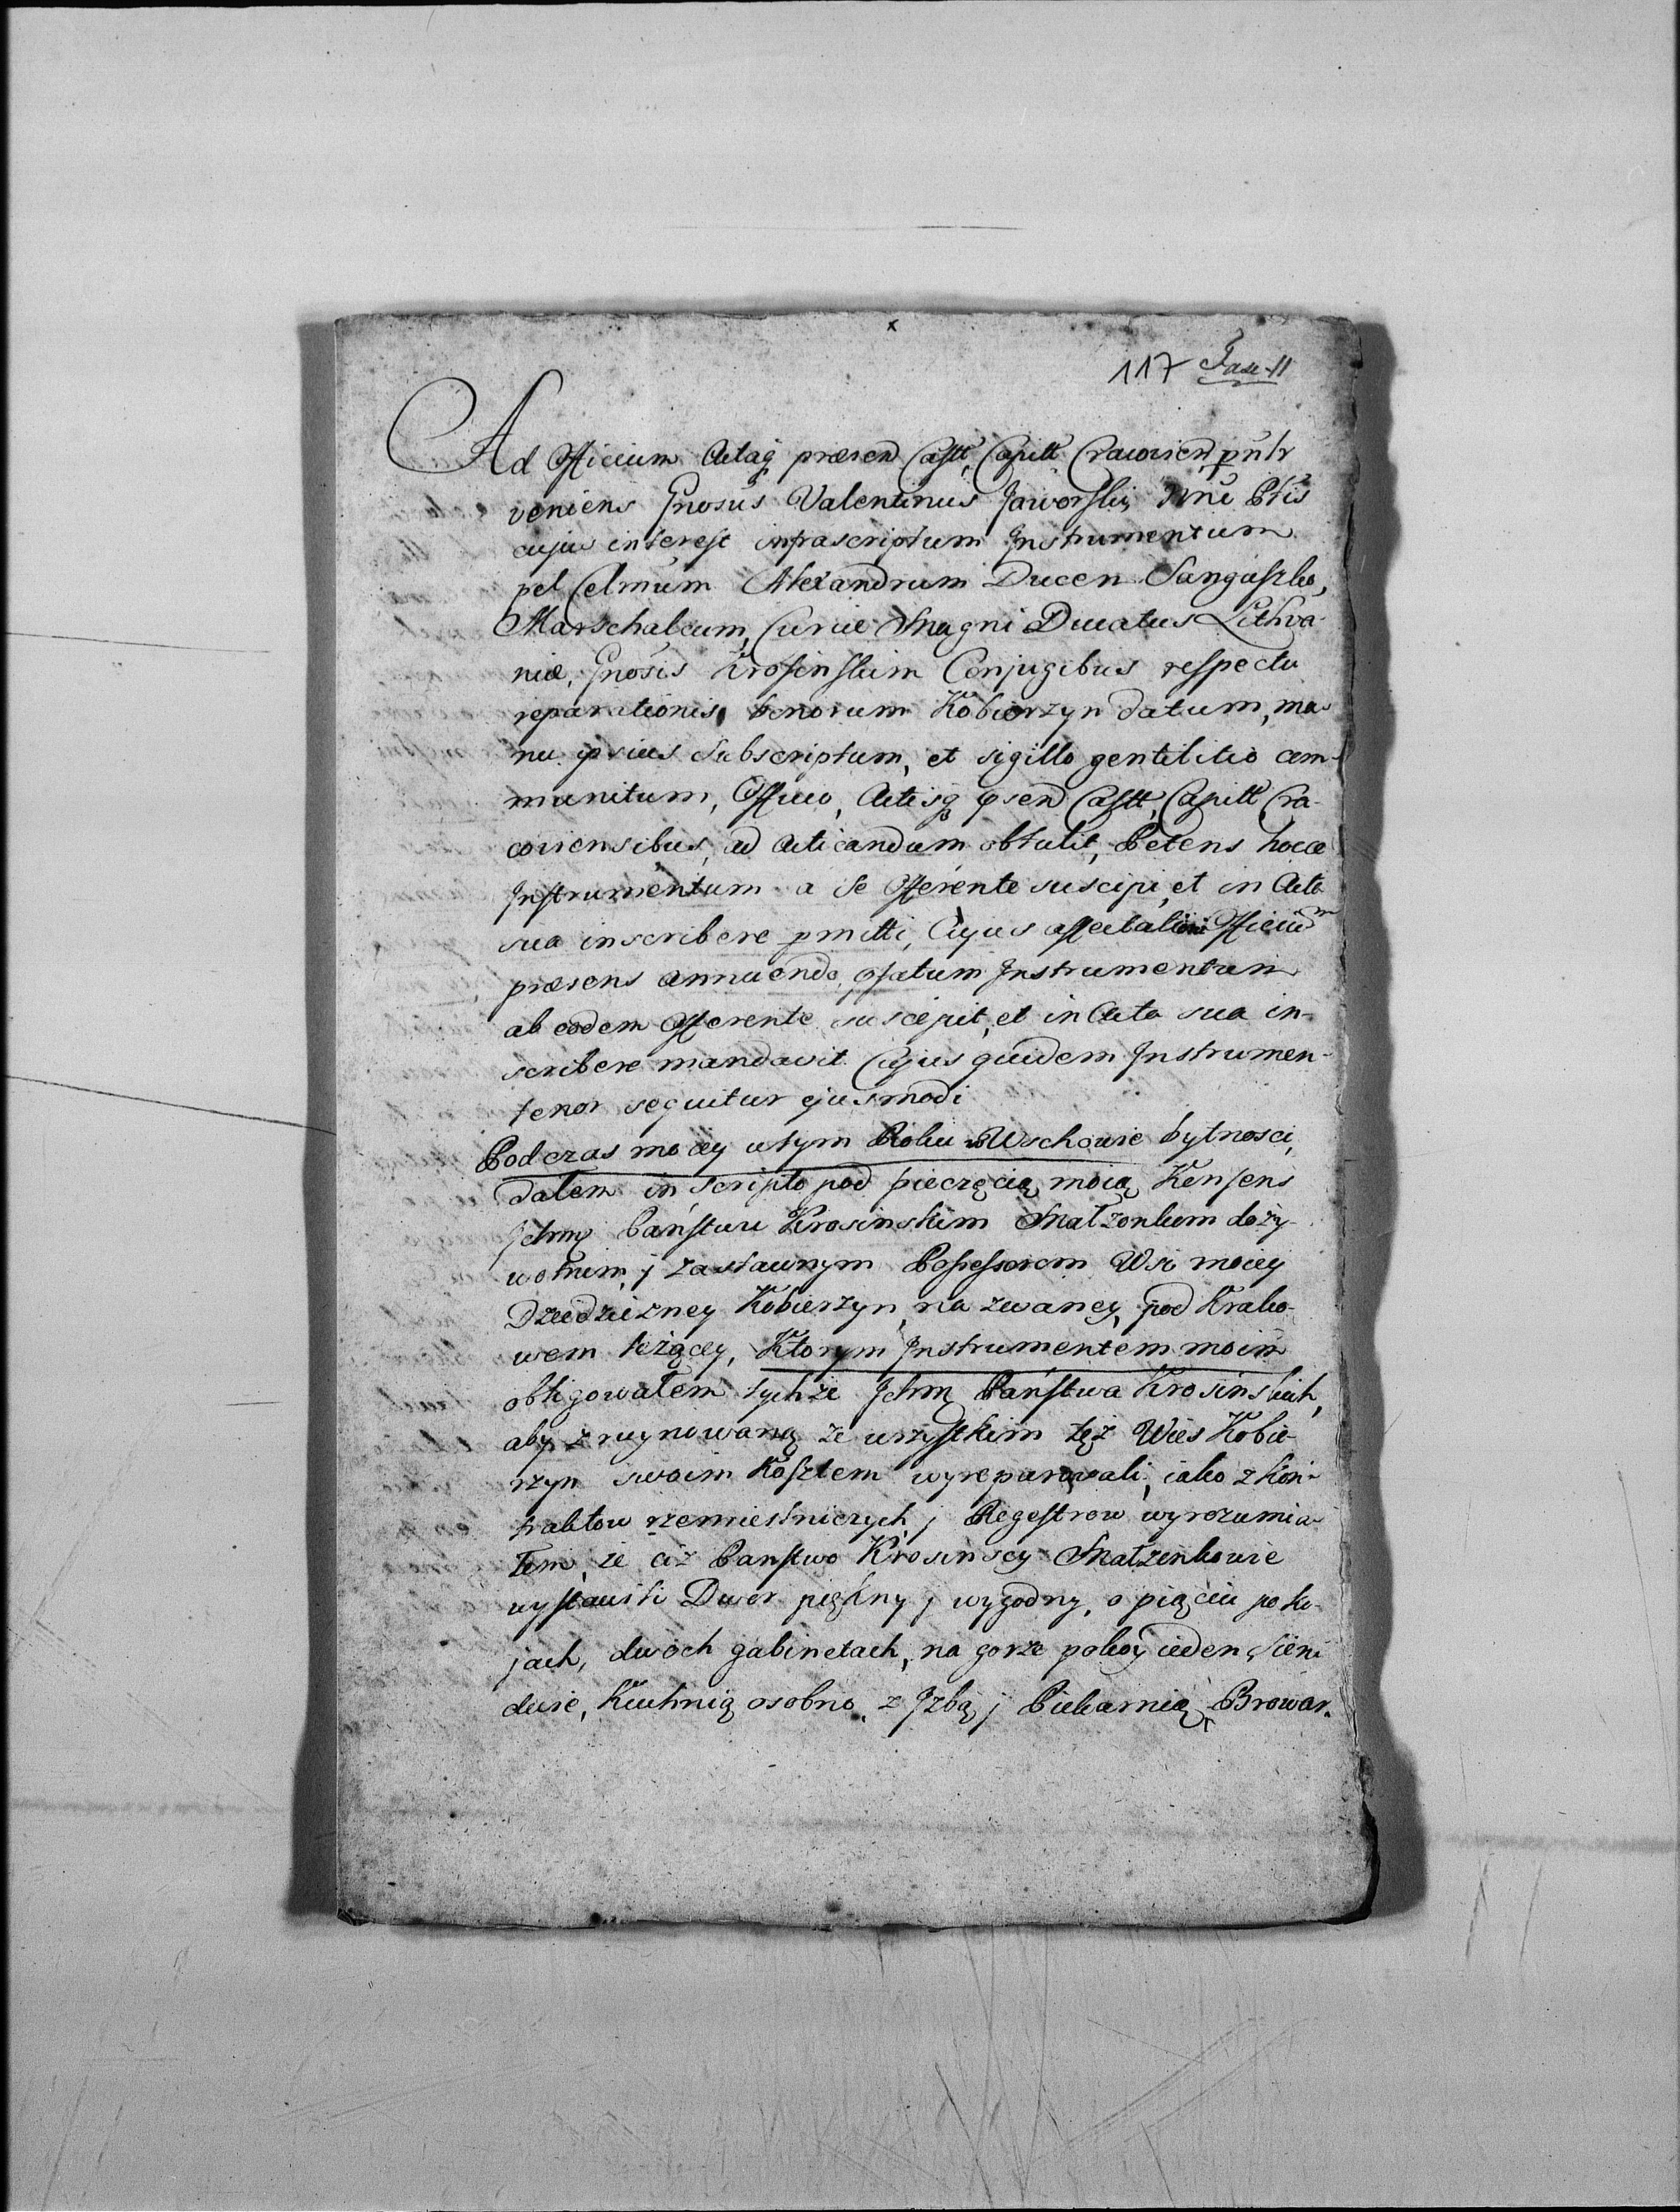 117 Fasc. 11
Ad Officium Actaq praesen Castr, Capitt Cracovien pntr
veniens Gnosus Valentinus Jaworski, Nnē Ptis
cujus interest infrascriptum Instrumentum
per Celmum Alexandrum Ducem Sanguszko,
Marschalcum, Curiae Magni Ducatus Lithva-
niae, Gnosis Krosinskim Conjugibus respectu
reparationis bonorum Kobierzyn datum, ma-
nu ipsius Subscriptum, et sigillo gentilitio com-
munitum, Officio, Actisq psen Castr, Capitt, Cra-
coviensibus, ad Acticandum obtulit, Petens hocce
Instrumentum a se Offerente suscipi, et in Acta
sua inscribere pmitti, Cujus affectationi Officium
praesens annuendo, pfatum Instrumentum
ab eodem Offerente suscepit, et in Acta sua in-
scribere mandavit. Cujus quidem Instrumen-
tenor sequitur ejusmodi
Podczas mocy w tym Roku w Wschowie bytnosci,
dałem in scripto pod pieczęcią moią Konsens
Jchmc Państwu Krosinskim Małzonkom doży-
wotnim, j zastawnym Possessorom Wsi moiey
Dziedziczney Kobierzyn, na zwaney, pod Krako-
wem leżącey, Ktorym Instrumentem moim
obligowałem tychże Jchmc Państwa Krosinskich,
aby zruynowaną ze wszystkim też Wies Kobie-
rzyn swoim Kosztem wyreparowali, iako z kon-
traktow rzemiesniczych, j Regestrow wyrozumia-
łem, że ciż Państwo Krosinscy Małzonkowie
wystawili Dwor piękny j wygodny, o pięciu poko-
jach, dwoch gabinetach, na gorze pokoy ieden, Sieni
dwie, Kuchnią osobno, z Jzbą j Piekarnią, Browar.